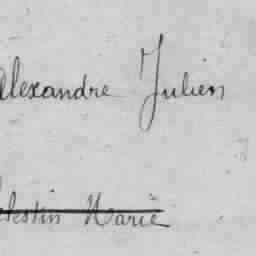 Alexandre Julien
elestin Marie